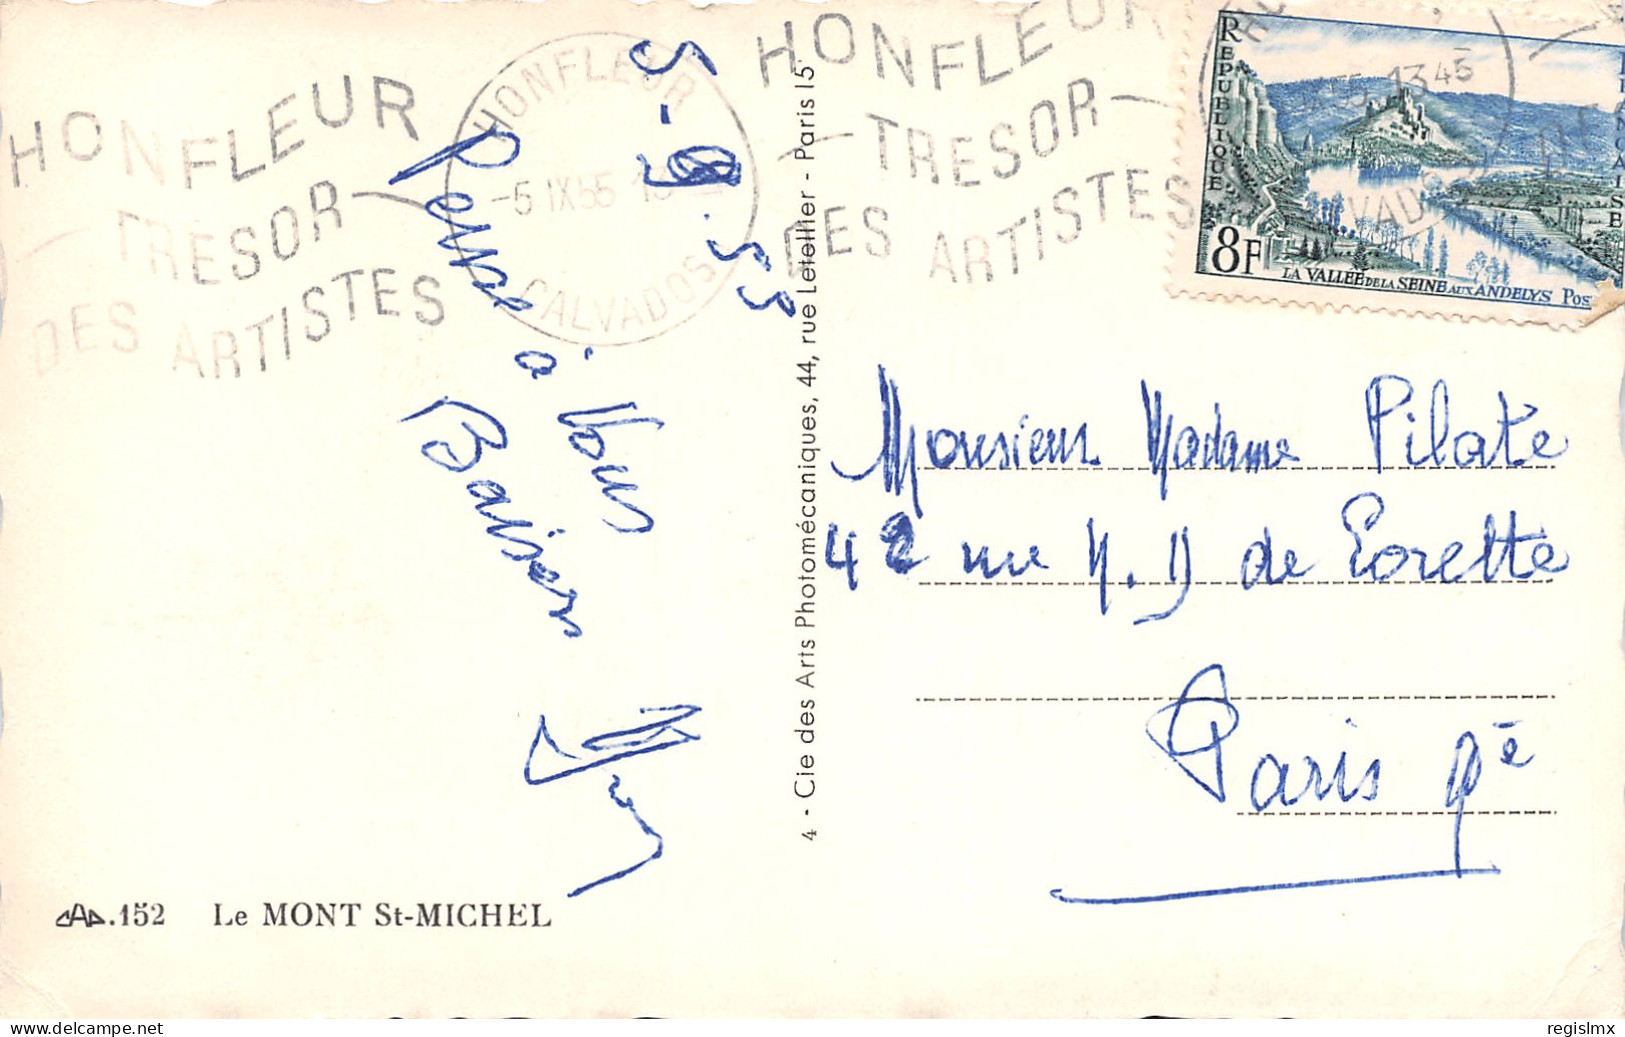 HONFLEUR
TRESOR
DES ARTISTES
HONFLEUR
-5 IX 55
CALVADOS
HONFLEUR
TRESOR
DES ARTISTES
1345
REPUBLIQUE
FRANÇAISE
8F
LA VALLÉE DE LA SEINE AUX ANDELYS POS
5-9.55
Pense à Vous
Baisers
4 - Cie des Arts Photomécaniques, 44, rue Letellier - Paris 15
Monsieur Madame Pilate
42 rue N.D de Lorette
Paris 9è
CAP.152 Le MONT St-MICHEL
regislmx